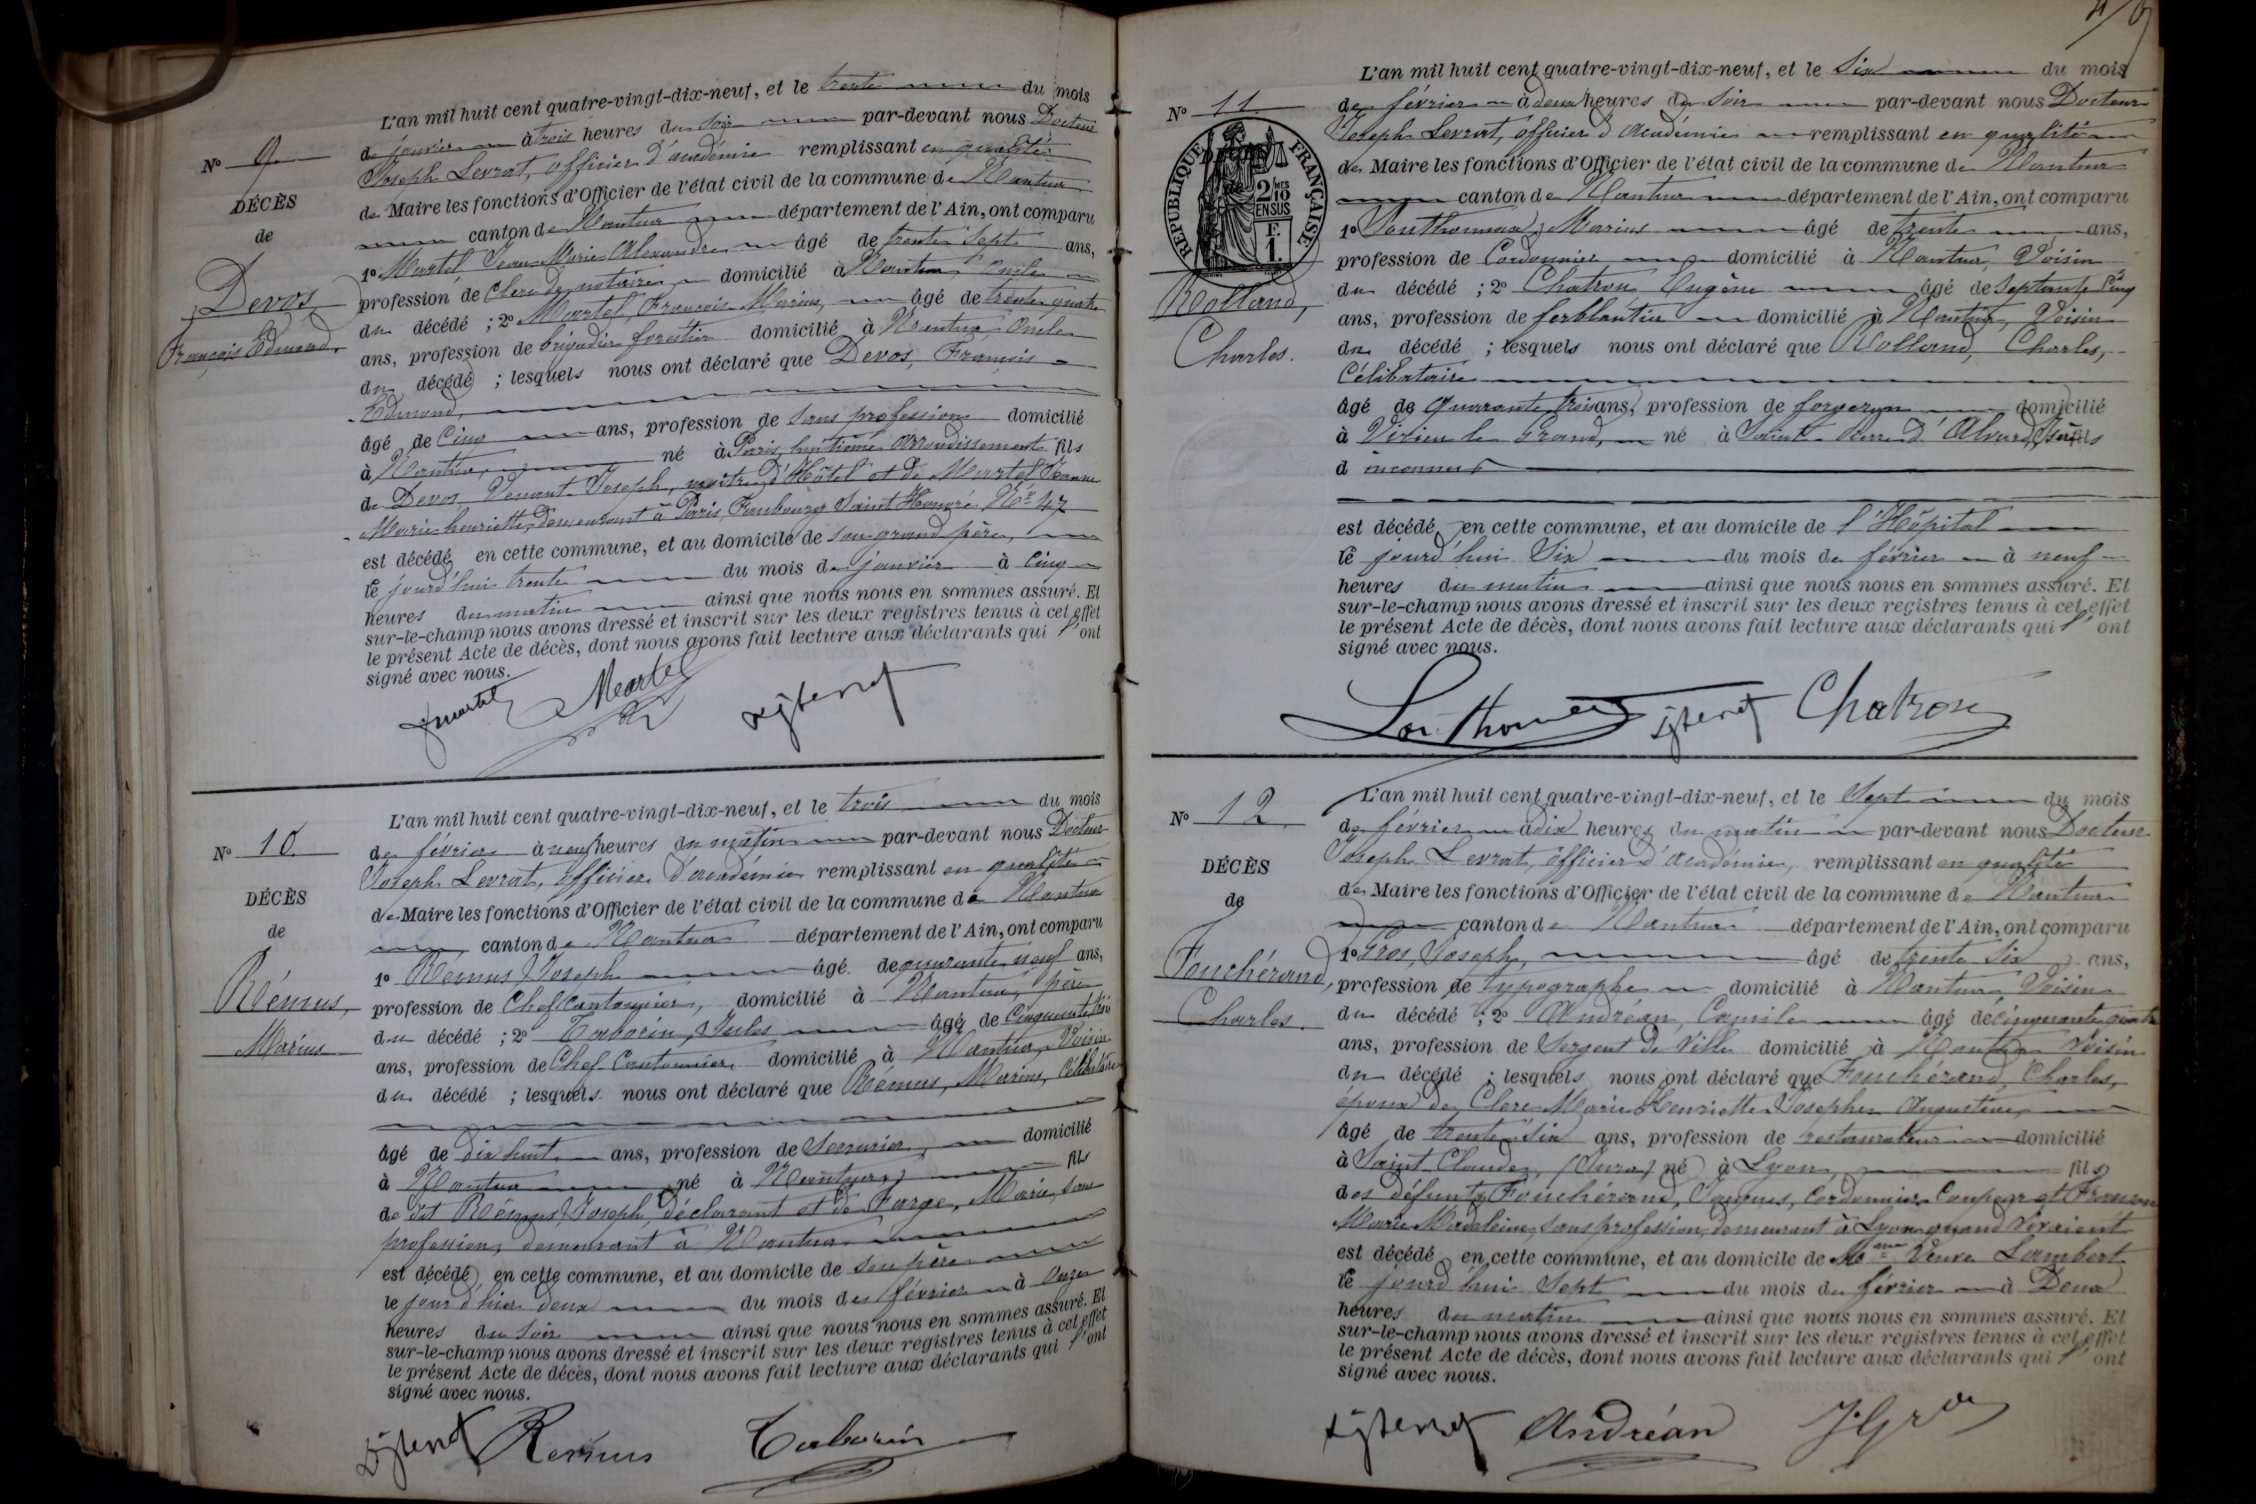 L'an mil huit cent quatre-vingt-dix-neuf, et le trente du mois
de janvier à trois heures du soir par-devant nous Docteur
Joseph Levrat, officier d'académie remplissant en qualité
de Maire les fonctions d'Officier de l'état civil de la commune de Nantua
canton de Nantua département de l'Ain, ont comparu
1o Martel Jean Marie Alexandre âgé de trente sept ans,
profession de Clerc de notaire domicilié à Nantua oncle
du décédé ; 2o Martel, François Marius, âgé de trente quatre
ans, profession de brigadier forestier domicilié à Nantua oncle
du décédé ; lesquels nous ont déclaré que Devos, François
Edmond,
âgé de Cinq ans, profession de sans profession domicilié
à Nantua, né à Paris, huitième arrondissement fils
de Devos Venant Joseph, maître d'Hôtel et de Martel Jeanne
Marie henriette, demeurant à Paris, Faubourg Saint Honoré No 47
est décédé en cette commune, et au domicile de son grand père,
le jourd'hui trente du mois de janvier à Cinq
heures du matin ainsi que nous nous en sommes assuré. Et
sur-le-champ nous avons dressé et inscrit sur les deux registres tenus à cet effet
le présent Acte de décès, dont nous avons fait lecture aux déclarants qui l'ont
signé avec nous.
No 9
DÉCÈS
de
Devos
François Edmond.
Martel
No 10
DÉCÈS
de
Rémus,
Marius
L'an mil huit cent quatre-vingt-dix-neuf, et le trois du mois
de février à neuf heures du matin par-devant nous Docteur
Joseph Levrat, officier d'académie remplissant en qualité
de Maire les fonctions d'Officier de l'état civil de la commune de Nantua
canton de Nantua département de l'Ain, ont comparu
1o Rémus Joseph âgé de quarante neuf ans,
profession de Chef Cantonnier, domicilié à Nantua, père
du décédé ; 2o Taborin, Jules âgé de Cinquante
ans, profession de Chef Cantonnier domicilié à Nantua, Voisin
du décédé ; lesquels nous ont déclaré que Rémus, Marius, Célibataire
âgé de dix huit ans, profession de Serrurier, domicilié
à Nantua né à Nantua, fils
de dit Rémus Joseph, déclarant et de Farge, Marie, sans
profession, demeurant à Nantua
est décédé en cette commune, et au domicile de son père
le jour d'hier deux du mois de février à Onze
heures du soir ainsi que nous nous en sommes assuré. Et
sur-le-champ nous avons dressé et inscrit sur les deux registres tenus à cet effet
le présent Acte de décès, dont nous avons fait lecture aux déclarants qui l'ont
signé avec nous.
Remus Taborin
No 11
DÉCÈS
de
RÉPUBLIQUE FRANÇAISE
2/10 MES
EN SUS
F.
1.
Rolland,
Charles.
L'an mil huit cent quatre-vingt-dix-neuf, et le Six du mois
de février à deux heures du soir par-devant nous Docteur
Joseph Levrat, officier d'Académie remplissant en qualité
de Maire les fonctions d'Officier de l'état civil de la commune de Nantua
canton de Nantua département de l'Ain, ont comparu
1o Southonnax, Marius âgé de trente ans,
profession de Cordonnier domicilié à Nantua, Voisin
du décédé ; 2o Chatron Eugène âgé de Septante Cinq
ans, profession de ferblantier domicilié à Nantua, Voisin
du décédé ; lesquels nous ont déclaré que Rolland, Charles,
Célibataire
âgé de Quarante trois ans, profession de forgeron domicilié
à Virieu le Grand, né à Saint Pierre d'Alvard, Isère fils
d inconnus
est décédé en cette commune, et au domicile de l'Hôpital
le jourd'hui Six du mois de février à neuf
heures du matin ainsi que nous nous en sommes assuré. Et
sur-le-champ nous avons dressé et inscrit sur les deux registres tenus à cet effet
le présent Acte de décès, dont nous avons fait lecture aux déclarants qui l'ont
signé avec nous.
Chatron
No 12
DÉCÈS
de
Fouchérand,
Charles.
L'an mil huit cent quatre-vingt-dix-neuf, et le Sept du mois
de février à dix heures du matin par-devant nous Docteur
Joseph Levrat, officier d'académie, remplissant en qualité
de Maire les fonctions d'Officier de l'état civil de la commune de Nantua
canton de Nantua département de l'Ain, ont comparu
1o Gros, Joseph, âgé de trente Six ans,
profession de typographe domicilié à Nantua, Voisin
du décédé ; 2o Andréan, Camile âgé de cinquante quatre
ans, profession de Sergent de Ville domicilié à Nantua Voisin
du décédé ; lesquels nous ont déclaré que Fouchérand, Charles,
époux de Clerc Marie Henriette Josephe Augustine,
âgé de trente Six ans, profession de restaurateur domicilié
à Saint Claude, (Jura) né à Lyon, fils
des défunts Fouchérand, Jacques, Cordonnier Coupeur et
Marie Madeleine, sans profession, demeurant à Lyon quand vivaient
est décédé en cette commune, et au domicile de Mme Veuve Lambert
le jourd'hui Sept du mois de février à Deux
heures du matin ainsi que nous nous en sommes assuré. Et
sur-le-champ nous avons dressé et inscrit sur les deux registres tenus à cet effet
le présent Acte de décès, dont nous avons fait lecture aux déclarants qui l'ont
signé avec nous.
Andréan J. Gros